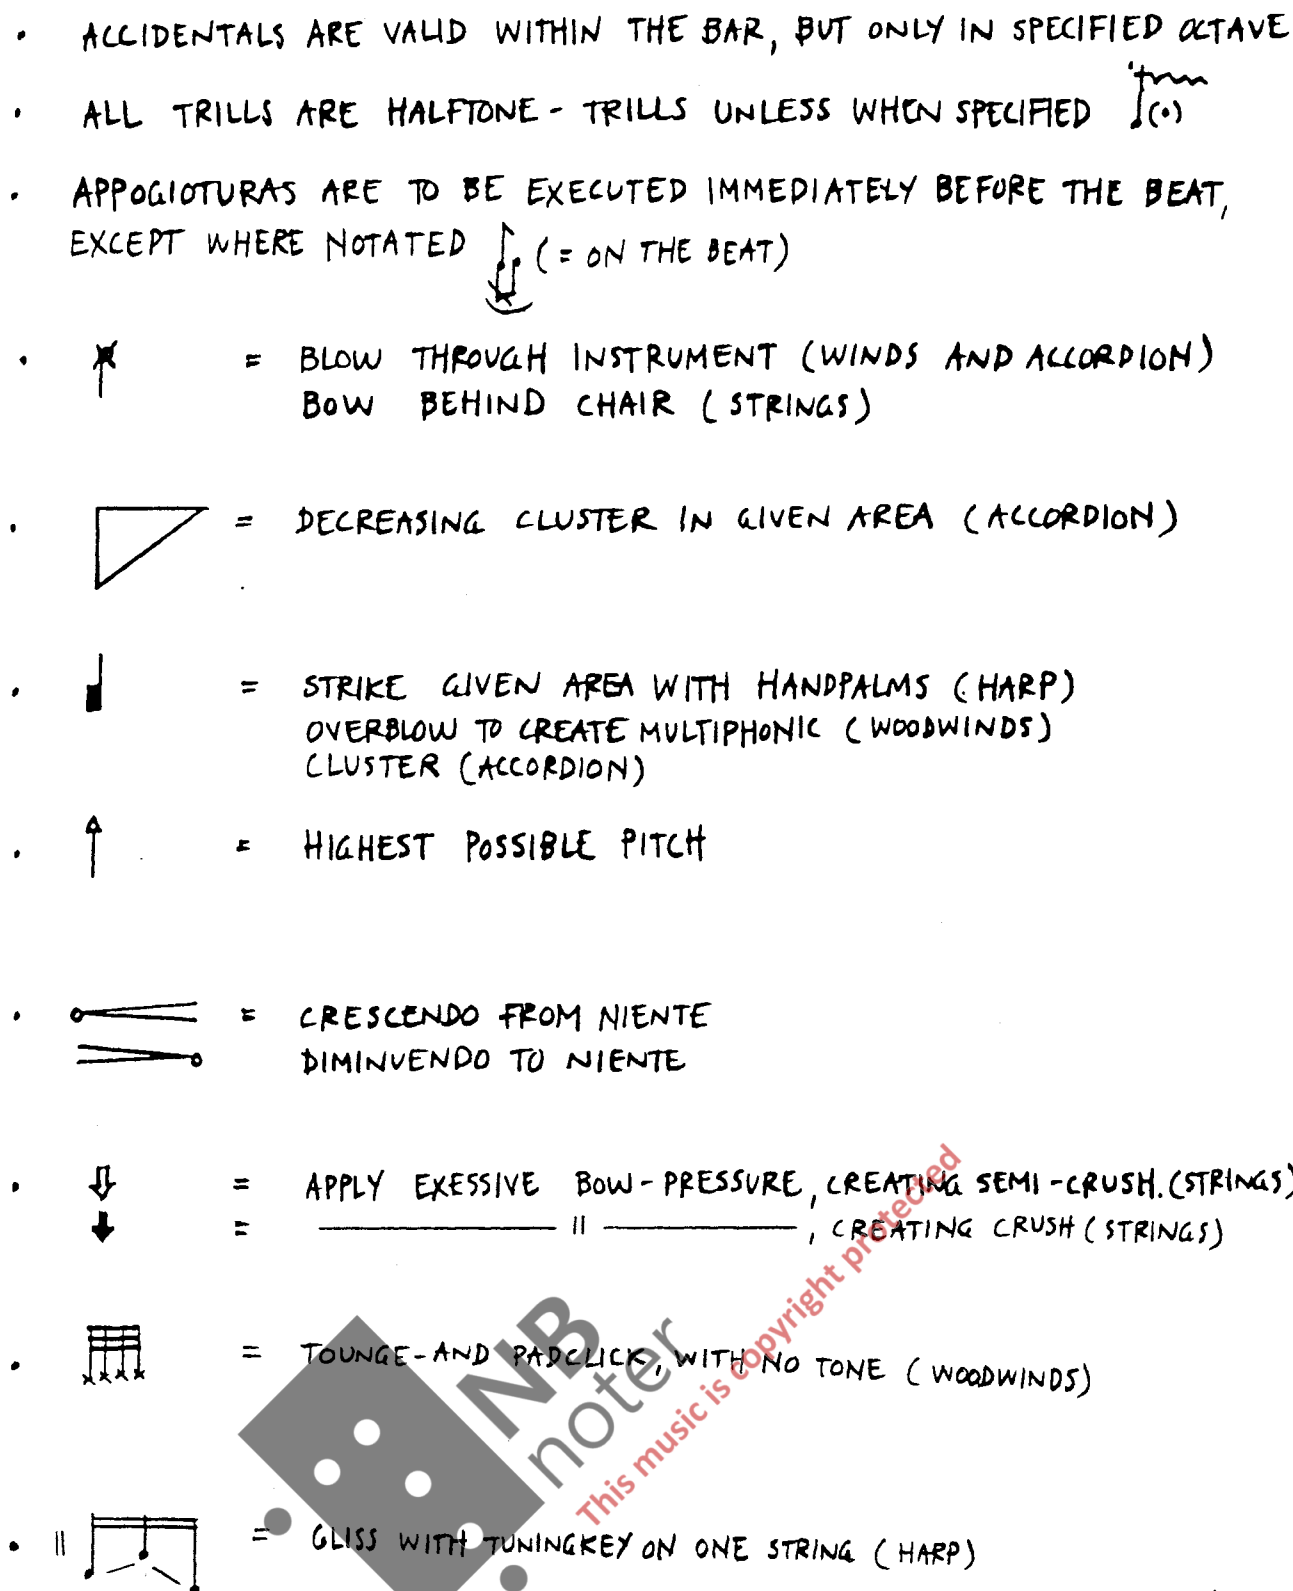 • ACCIDENTALS ARE VALID WITHIN THE BAR, BUT ONLY IN SPECIFIED OCTAVE
• ALL TRILLS ARE HALFTONE - TRILLS UNLESS WHEN SPECIFIED
• APPOGIOTURAS ARE TO BE EXECUTED IMMEDIATELY BEFORE THE BEAT,
EXCEPT WHERE NOTATED (= ON THE BEAT)
• = BLOW THROUGH INSTRUMENT (WINDS AND ACCORDION)
BOW BEHIND CHAIR (STRINGS)
• = DECREASING CLUSTER IN GIVEN AREA (ACCORDION)
• = STRIKE GIVEN AREA WITH HANDPALMS (HARP)
OVERBLOW TO CREATE MULTIPHONIC (WOODWINDS)
CLUSTER (ACCORDION)
• = HIGHEST POSSIBLE PITCH
• = CRESCENDO FROM NIENTE
DIMINUENDO TO NIENTE
• = APPLY EXESSIVE BOW-PRESSURE, CREATING SEMI-CRUSH. (STRINGS)
= ——— || ———, CREATING CRUSH (STRINGS)
• = TOUNGE-AND PADCLICK, WITH NO TONE (WOODWINDS)
• || = GLISS WITH TUNINGKEY ON ONE STRING (HARP)
NB
noter
This music is copyright protected